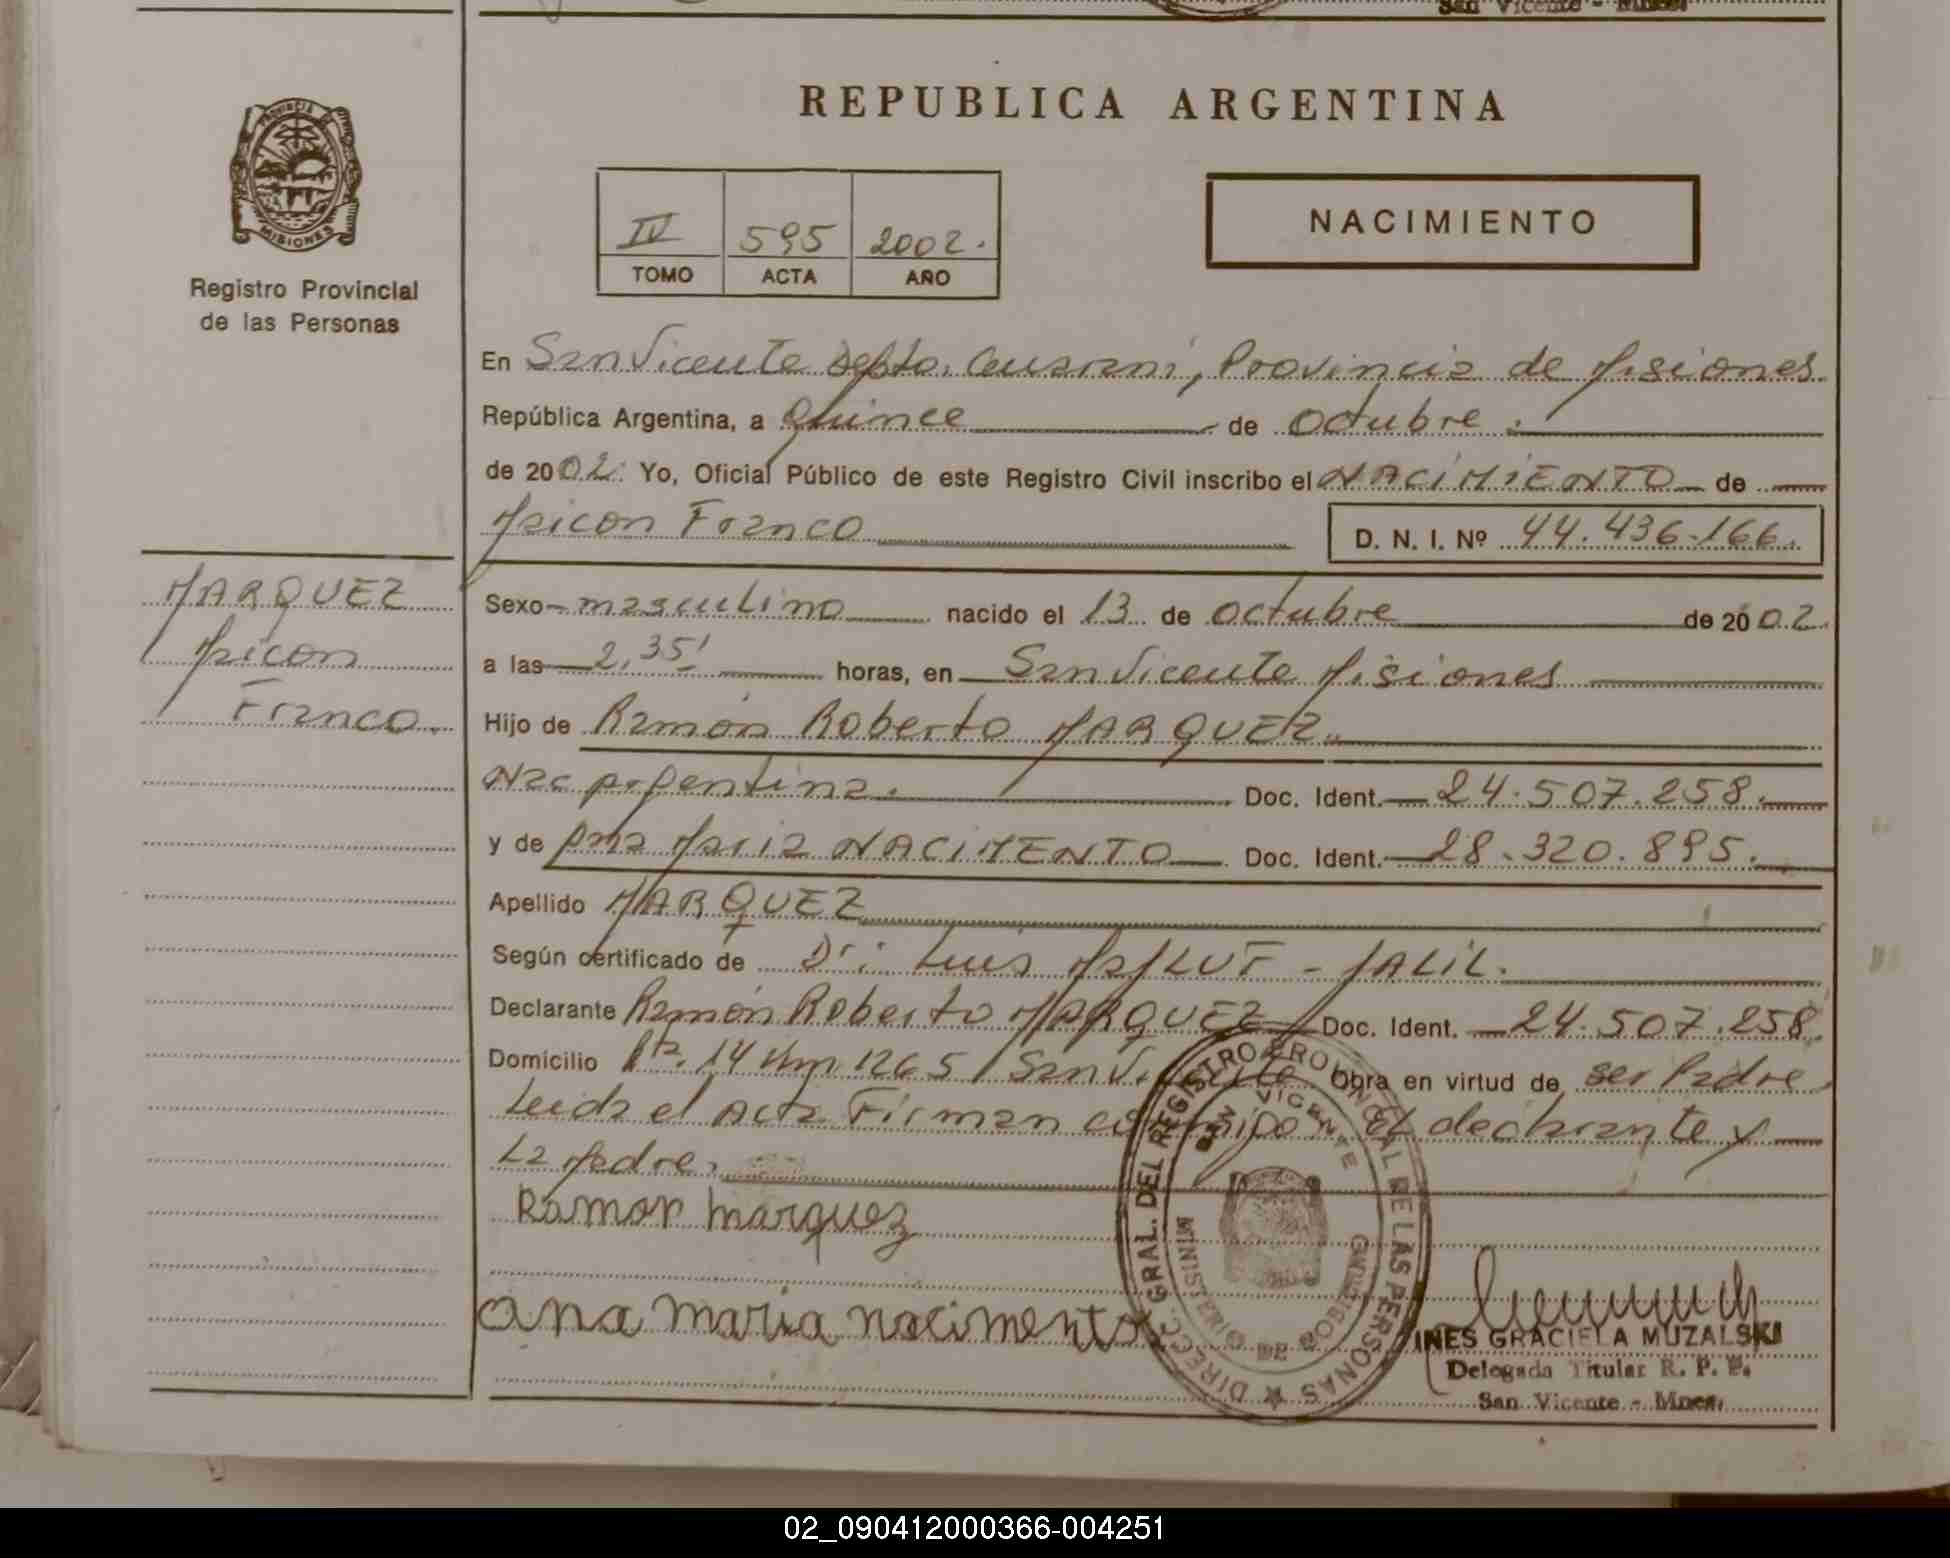 San Vicente - Mnes.
REPUBLICA ARGENTINA
PROVINCIA DE
MISIONES
Registro Provincial
de las Personas
IV 595 2002.
TOMO ACTA AÑO
NACIMIENTO
En San Vicente Depto. Guaraní, Provincia de Misiones
República Argentina, a Quince de Octubre
de 2002. Yo, Oficial Público de este Registro Civil inscribo el NACIMIENTO de
Maicon Franco D. N. I. Nº 44.436.166.
MARQUEZ
Maicon
Franco.
Sexo masculino nacido el 13 de Octubre de 2002
a las 2,35' horas, en San Vicente Misiones
Hijo de Ramón Roberto MARQUEZ
Nac Argentina. Doc. Ident. 24.507.258.
y de Ana Maria NACIMENTO Doc. Ident. 28.320.895.
Apellido MARQUEZ
Según certificado de Dr: Luis JALIL.
Declarante Ramón Roberto MARQUEZ Doc. Ident. 24.507.258
Domicilio Rta. 14 Km 1265 San Vicente Obra en virtud de ser Padre
Leida el Acta Firman conmigo El declarante y
La Madre.
Ramon marquez
ana maria nacimento
DIRECC. GRAL. DEL REGISTRO PROVINCIAL DE LAS PERSONAS
SAN VICENTE
MINISTERIO DE GOBIERNO
INES GRACIELA MUZALSKI
Delegada Titular R. P. P.
San Vicente - Mnes.
02_090412000366-004251